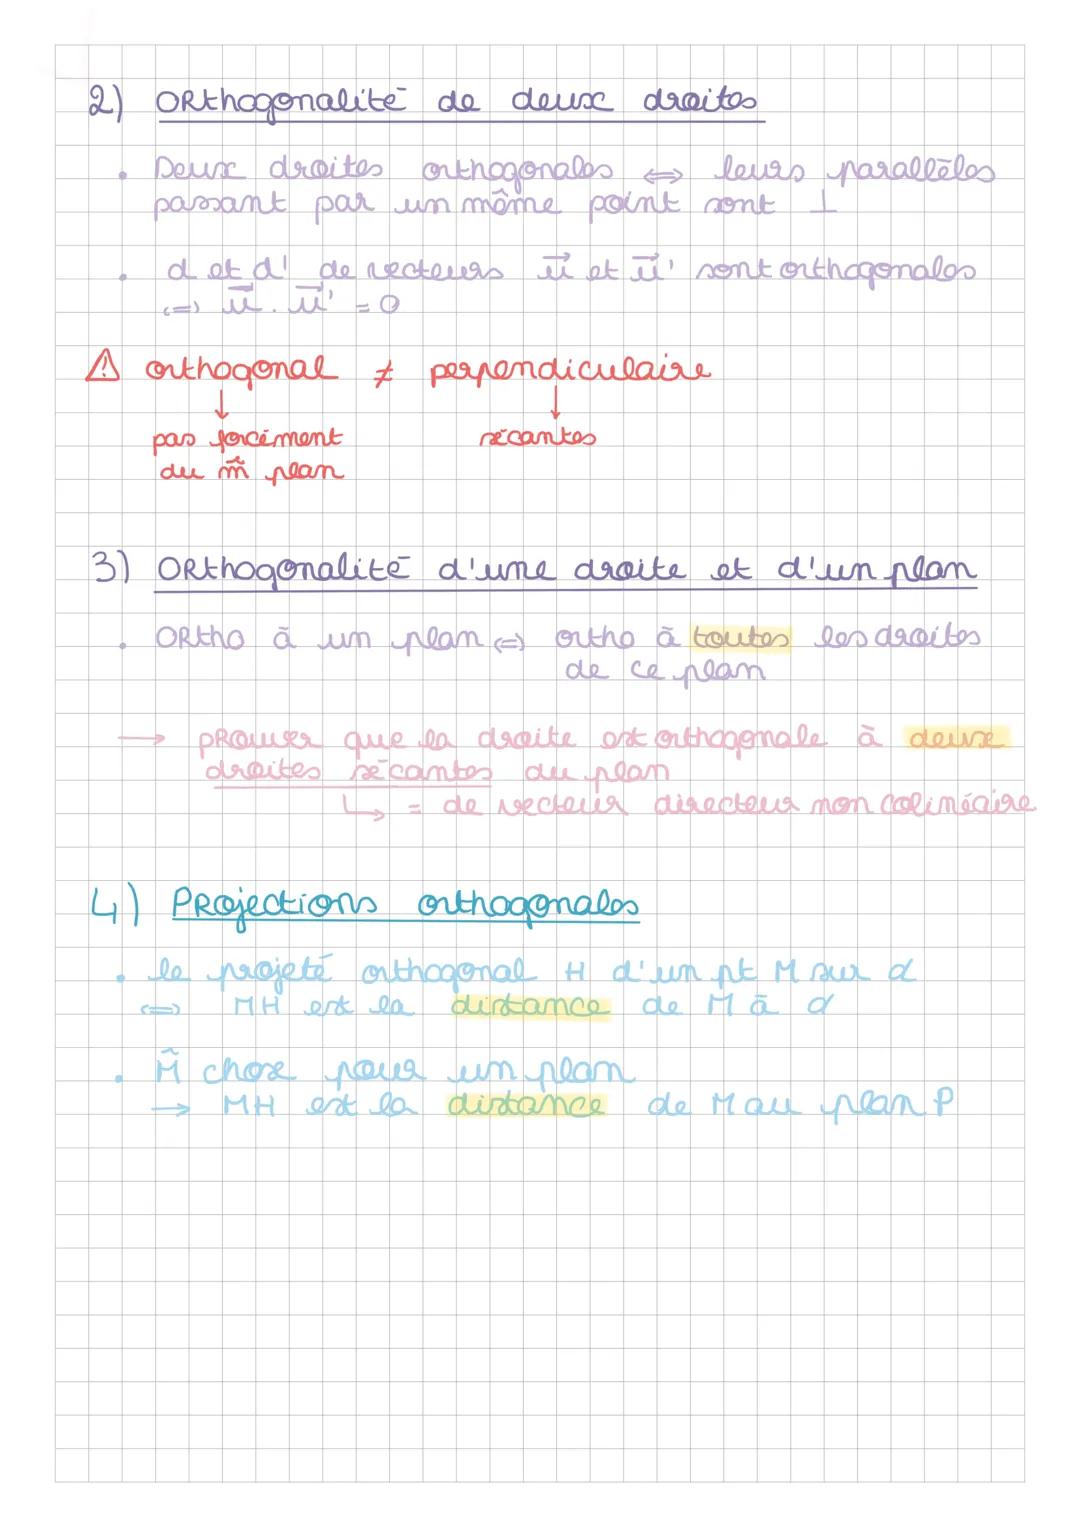 2) Orthogonalité de deux droites
• Deux droites orthogonales ⇔ leurs parallèles
passant par un même point sont ⊥
• d et d' de vecteurs u⃗ et u⃗' sont orthogonales
⇔ u⃗ . u⃗' = 0
⚠ orthogonal ≠ perpendiculaire
↓ ↓
pas forcément sécantes
du m̂ plan
3) Orthogonalité d'une droite et d'un plan
• Ortho à un plan ⇔ ortho à toutes les droites
de ce plan
→ prouver que la droite est orthogonale à deux
droites sécantes du plan
↳ = de vecteur directeur non colinéaire
4) Projections orthogonales
• le projeté orthogonal H d'un pt M sur d
⇔ MH est la distance de M à d
• M̂ chose pour un plan
→ MH est la distance de M au plan P